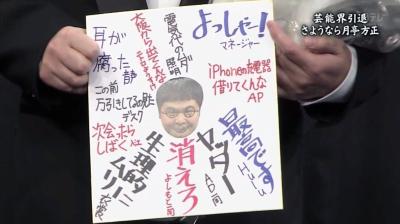 芸能界引退
さようなら月亭方正
よっしゃー!
マネージャー
iPhoneの充電器
借りてくんな
AP
最高です
Hulu
ヤッター
AD一同
消えろ
よしもと一同
電気代のムダ
照明
大阪から出てくんな
耳が
腐った
この前
万引きしてるの見た
デスク
次会ったら
しばく
生理的に
ムリ!!